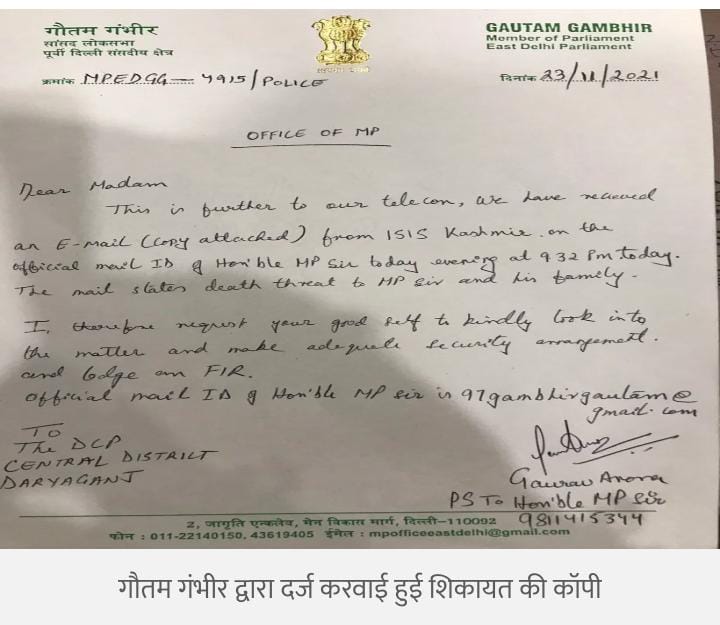 गौतम गंभीर
सांसद लोकसभा
पूर्वी दिल्ली संसदीय क्षेत्र
GAUTAM GAMBHIR
Member of Parliament
East Delhi Parliament
क्रमांक MPEDGG — 4915/POLICE
दिनांक 23/11/2021
OFFICE OF MP
Dear Madam
This is further to our telecon, we have recieved
an E-mail (copy attached) from ISIS Kashmir on the
official mail ID of Hon'ble MP Sir today evening at 9.32 Pm today.
The mail states death threat to MP sir and his family.
I, therefore request your good self to kindly look into
the matter and make adequate security arrangement.
and lodge an FIR.
official mail ID of Hon'ble MP sir is 97gambhirgautam@
gmail.com
TO
The DCP
CENTRAL DISTRICT
DARYAGANJ
Gaurav Arora
PS To Hon'ble MP Sir
9811415344
2, जागृति एन्कलेव, मेन विकास मार्ग, दिल्ली–110092
फोन : 011-22140150, 43619405 ईमेल : mpofficeeastdelhi@gmail.com
गौतम गंभीर द्वारा दर्ज करवाई हुई शिकायत की कॉपी